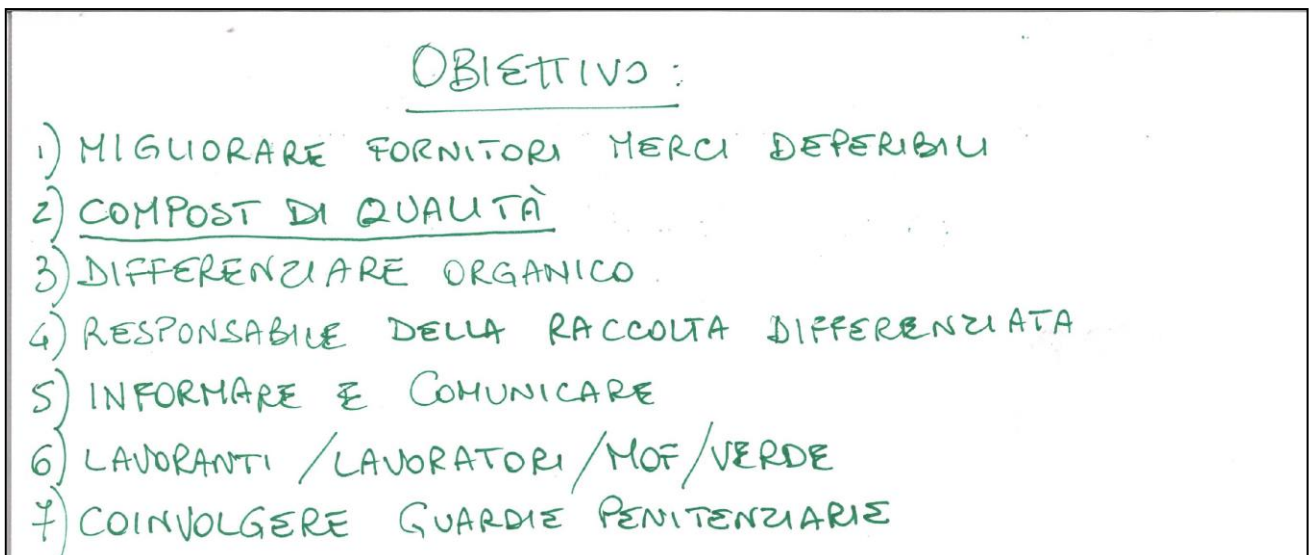 OBIETTIVO:
1) MIGLIORARE FORNITORI MERCI DEPERIBILI
2) COMPOST DI QUALITÀ
3) DIFFERENZIARE ORGANICO
4) RESPONSABILE DELLA RACCOLTA DIFFERENZIATA
5) INFORMARE E COMUNICARE
6) LAVORANTI /LAVORATORI/MOF/VERDE
7) COINVOLGERE GUARDIE PENITENZIARIE